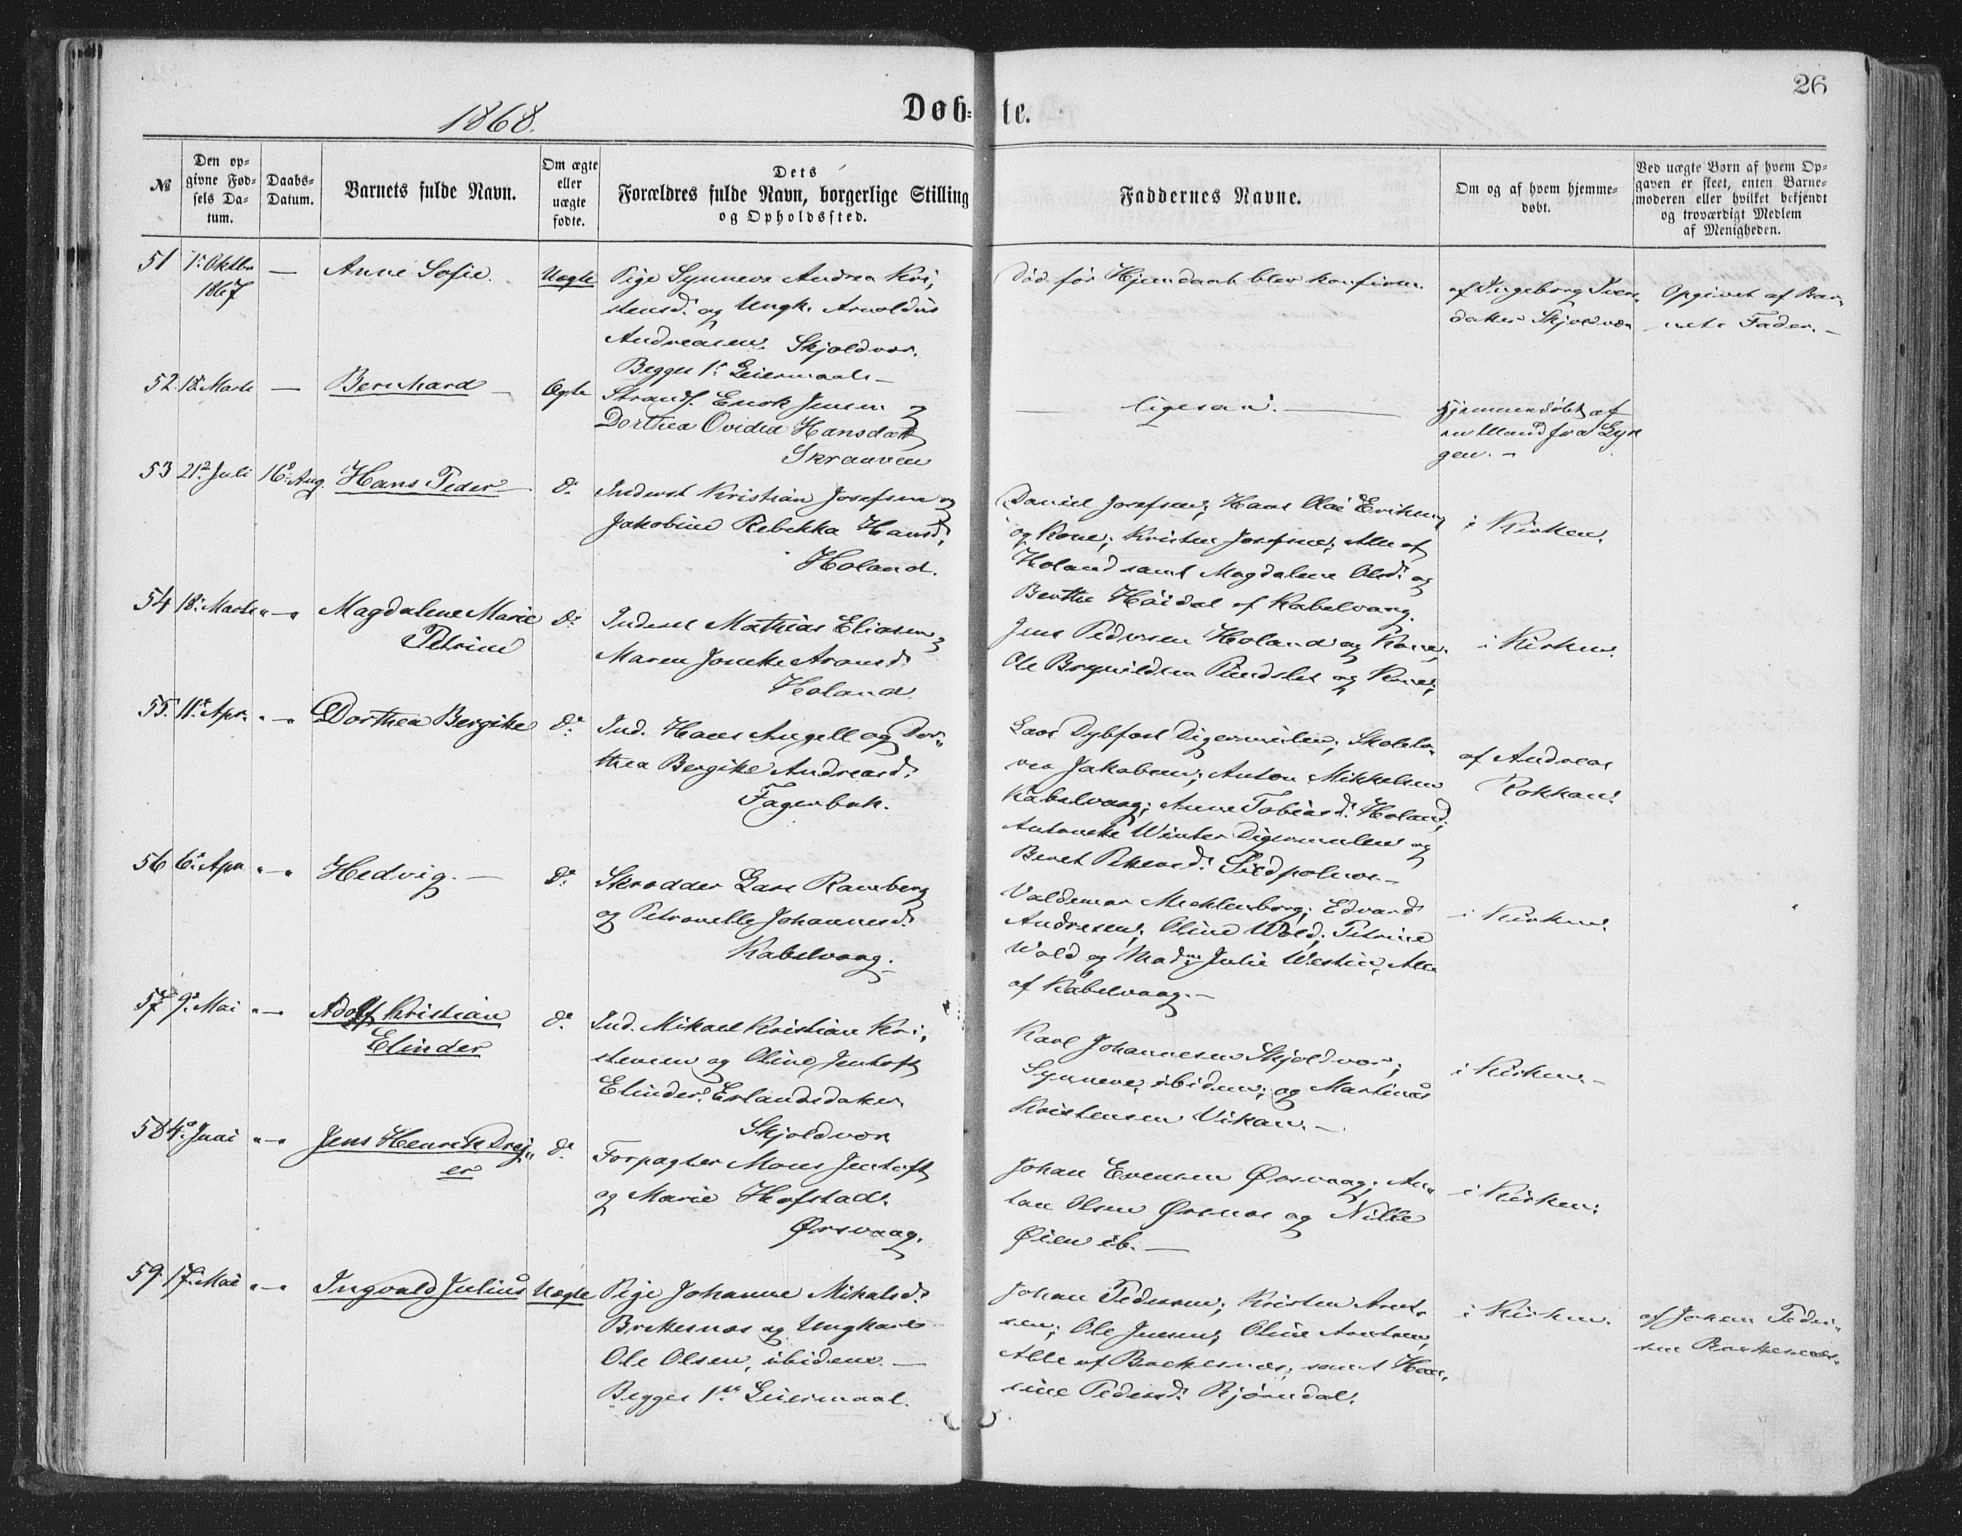 26
1868.
Døb-te.
№
Den op-
givne Fød-
sels Da-
tum.
Daabs-
Datum.
Barnets fulde Navn.
Om ægte
eller
uægte
fødte.
Dets
Forældres fulde Navn, borgerlige Stilling
og Opholdssted.
Faddernes Navne.
Om og af hvem hjemme-
døbt.
Ved uægte Børn af hvem Op-
gaven er skeet, enten Barne-
moderen eller hvilket bekjendt
og troværdigt Medlem
af Menigheden.
51 1ste Oktbr
1867
—
Anne Sofie.
Uægte
Pige Synneva Andrea Kri,
stensd. og Ungk. Arnoldus
Andreasen. Skjoldvær.
Begges 1ste Leiermaal.—
Død før Hjemdaab blev konfirm.
af Ingeborg
Skjoldvær
Opgivet af Bar,
nets Fader.—
52. 18. Marts
—
Bernhard —
Ægte
Strands. Enok Jensen og
Dorthea Ovidia Hansdatt
Skraaven
— ligesaa. —
Hjemmedøbt af
en Mand fra
gen. —
53 21de Juli
16de Aug.
Hans Peder —
do.
Inderst Kristian Josefsen og
Jakobine Rebekka Hansd.
Holand.
Daniel Josefsen; Hans Olai Eriksen
og Kone; Kristen Josefsen; Alle af
Holand samt Magdalene Olsd. og
Berthe Høidal af Kabelvaag.
i Kirken.
54 18. Marts
„—„
Magdalene Marie
Petrine
do.
Inderst Mathias Eliasen og
Maren Joneke Aronsd.
Holand.
Jens Pedersen Holand og Kone;
Ole Brynildsen og Kone;
i Kirken.
55. 11te Apr.
„—„
Dorthea Bergithe
do.
Ind. Hans Angell og Dor„
thea Bergithe Andreasd.
Fagerbak.
Lars Dybfest Digermulen; Skolelæ,
rer Jakobsen; Anton Mikkelsen
Kabelvaag; Anne Tobiasd. Holand;
Antonette Winter Digermulen og
Beret Sildpolnes.—
af Andreas
Kokkan.
56 6te Apr
„—„
Hedvig. —
do.
Skrædder Lars Ramberg
og Petronelle Johannesd.
Kabelvaag.
Valdemar Mechlenborg; Edvard
Andresen; Oline Wold; Petrine
Wold og Madme Julie Westin, Alle
af Kabelvaag.—
i Kirken.
57 9de Mai
„—„
Adolf Kristian
Elinder
do.
Ind. Mikael Kristian Kri,
stensen og Oline Jentoft
Elinder Erlandsdaker
Skjoldvær
Karl Johannesen Skjoldvær;
Synneve, ibidem; og Martinus
Kristensen Vikan. —
i Kirken.—
58 4de Juni
„—„
Jens Henrik Drej„
er
do.
Forpagter Mons Jentoft
og Marie Hofstad.
Ørsvaag.
Johan Evensen Ørsvaag; An„
ton Olsen Ørsnes og Nille
Øien ib. —
i Kirken.
59. 17. Mai
„—„
Ingvald Julius
Uægte
Pige Johanne Mikalsd.
Brettesnæs og Ungkarl
Ole Olsen, ibidem. —
Begges 1ste Leiermaal.
Johan Pedersen; Kristen Arent,
sen; Ole Jensen; Oline Arentsen,
Alle af samt Han,
sine Pedersd. Bjørndal.
i Kirken.
af Johan Peder,
sen